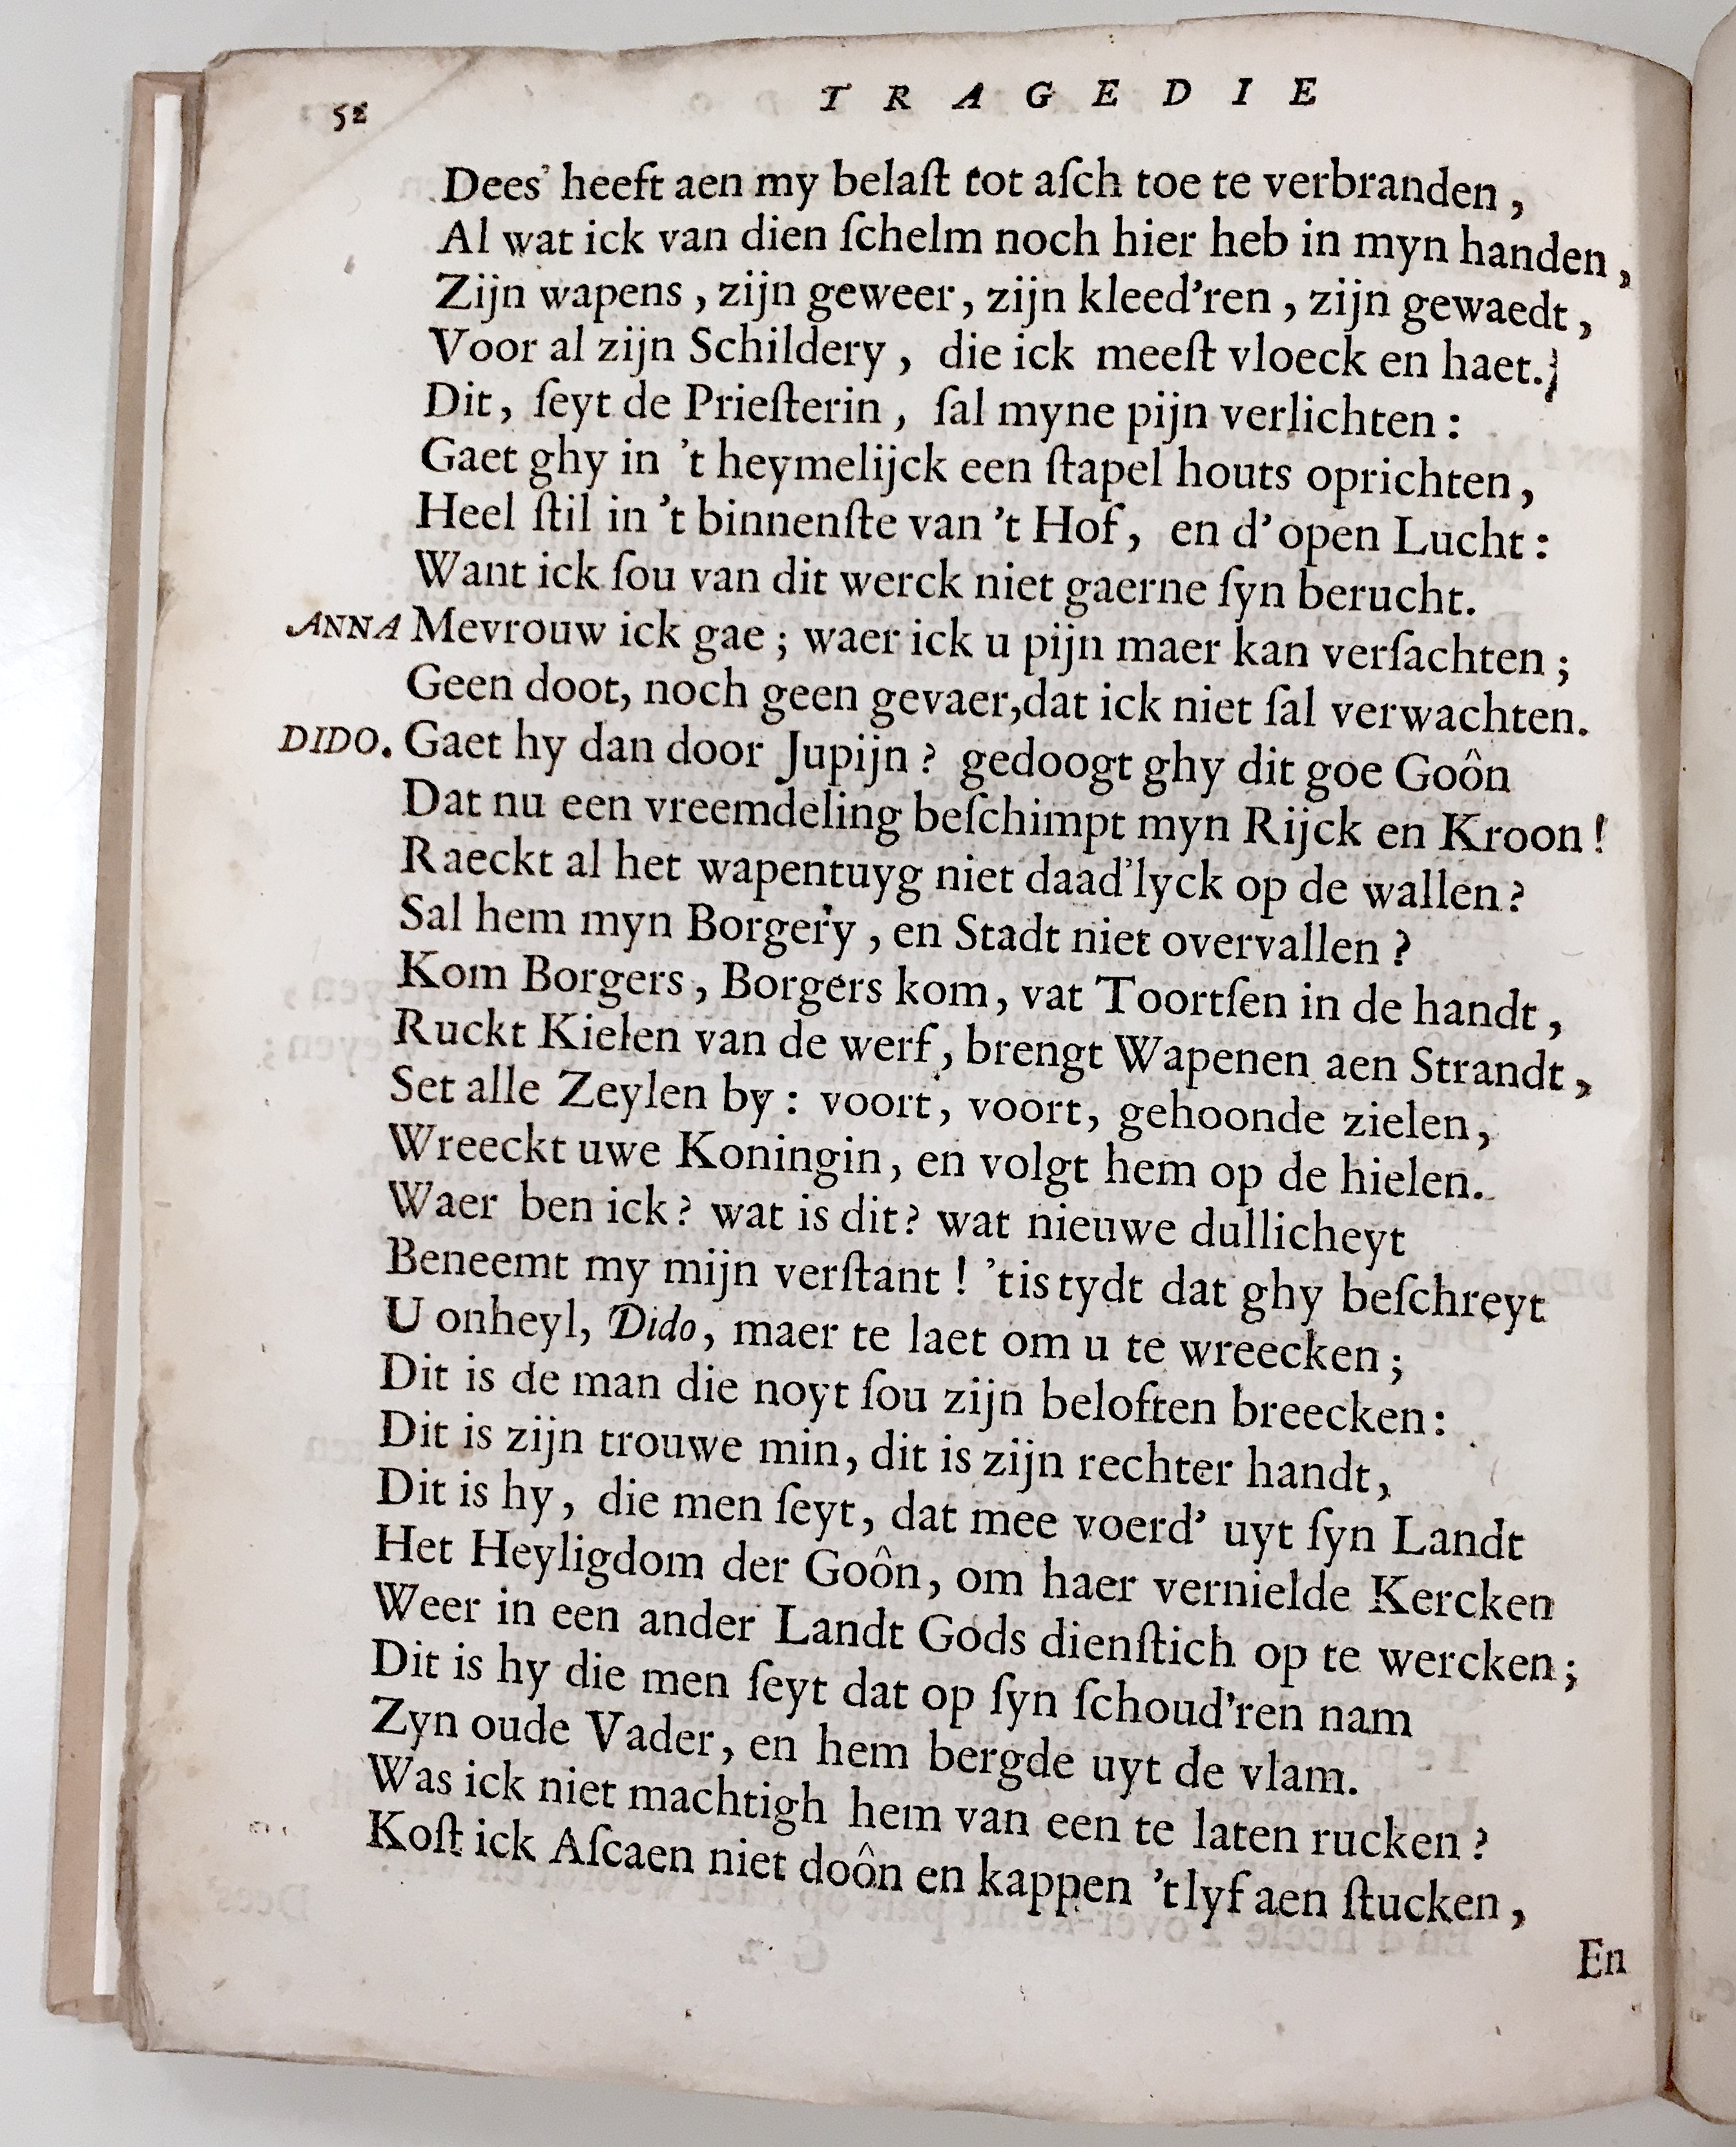 52 TRAGEDIE
Dees' heeft aen my belaſt tot aſch toe te verbranden,
Al wat ick van dien ſchelm noch hier heb in myn handen,
Zijn wapens, zijn geweer, zijn kleed'ren, zijn gewaedt,
Voor al zijn Schildery, die ick meeſt vloeck en haet.
Dit, ſeyt de Prieſterin, ſal myne pijn verlichten:
Gaet ghy in 't heymelijck een ſtapel houts oprichten,
Heel ſtil in 't binnenſte van 't Hof, en d'open Lucht:
Want ick ſou van dit werck niet gaerne ſyn berucht.
ANNA Mevrouw ick gae; waer ick u pijn maer kan verſachten;
Geen doot, noch geen gevaer,dat ick niet ſal verwachten.
DIDO. Gaet hy dan door Jupijn? gedoogt ghy dit goe Goôn
Dat nu een vreemdeling beſchimpt myn Rijck en Kroon!
Raeckt al het wapentuyg niet daad'lyck op de wallen?
Sal hem myn Borgery, en Stadt niet overvallen?
Kom Borgers, Borgers kom, vat Toortſen in de handt,
Ruckt Kielen van de werf, brengt Wapenen aen Strandt,
Set alle Zeylen by: voort, voort, gehoonde zielen,
Wreeckt uwe Koningin, en volgt hem op de hielen.
Waer ben ick? wat is dit? wat nieuwe dullicheyt
Beneemt my mijn verſtant! 'tis tydt dat ghy beſchreyt
U onheyl, Dido, maer te laet om u te wreecken;
Dit is de man die noyt ſou zijn beloften breecken:
Dit is zijn trouwe min, dit is zijn rechter handt,
Dit is hy, die men ſeyt, dat mee voerd' uyt ſyn Landt
Het Heyligdom der Goôn, om haer vernielde Kercken
Weer in een ander Landt Gods dienſtich op te wercken;
Dit is hy die men ſeyt dat op ſyn ſchoud'ren nam
Zyn oude Vader, en hem bergde uyt de vlam.
Was ick niet machtigh hem van een te laten rucken?
Koſt ick Aſcaen niet doôn en kappen 't lyf aen ſtucken,
En